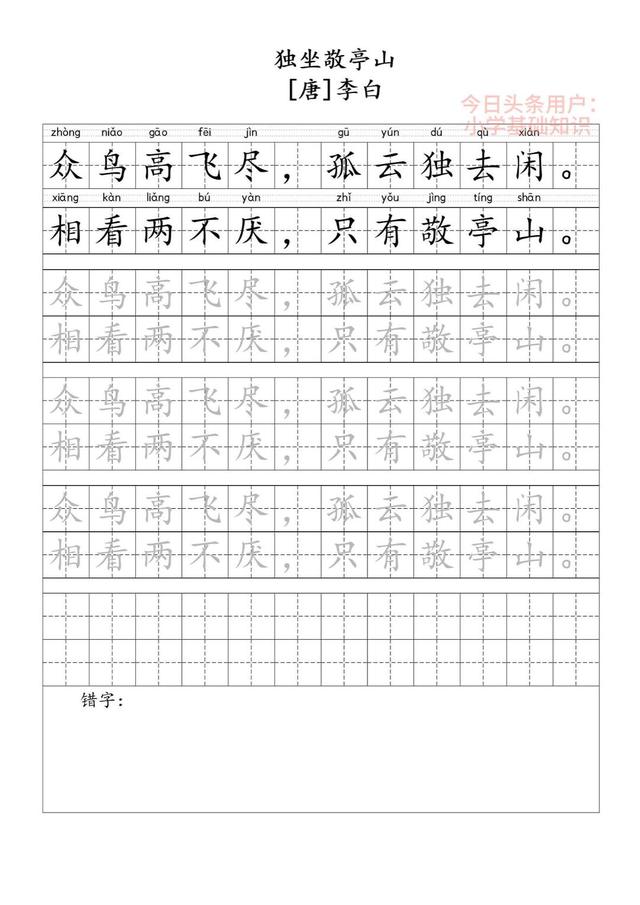 独坐敬亭山
[唐]李白
今日头条用户：
小学基础知识
zhòng niǎo gāo fēi jìn gū yún dú qù xián
众鸟高飞尽，孤云独去闲。
xiāng kàn liǎng bú yàn zhǐ yǒu jìng tíng shān
相看两不厌，只有敬亭山。
众鸟高飞尽，孤云独去闲。
相看两不厌，只有敬亭山。
众鸟高飞尽，孤云独去闲。
相看两不厌，只有敬亭山。
众鸟高飞尽，孤云独去闲。
相看两不厌，只有敬亭山。
错字：